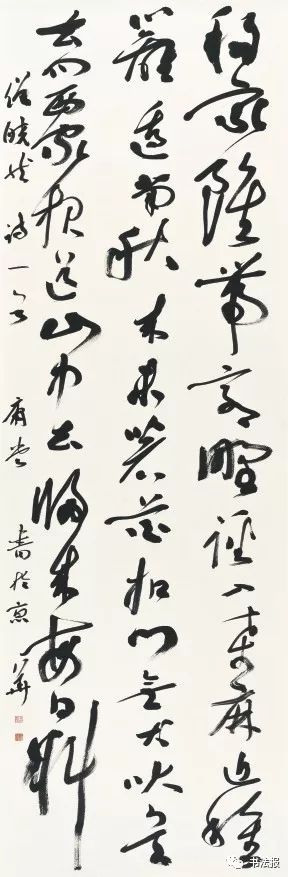 移家雖帶郭野徑入桑麻近種
籬邊菊秋來未著花扣門無犬吠欲
去問西家報道山中去歸來每日斜
僧皎然詩一首 書於京華
书法报